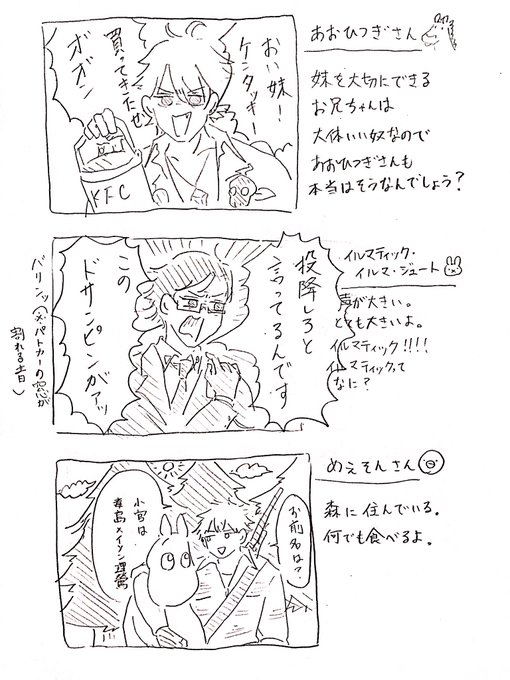 おい妹!
ケンタッキー
買ってきたぜ
ボガン
KFC
あおひつぎさん
妹を大切にできる
お兄ちゃんは
大体いい奴なので
あおひつぎさんも
本当はそうなんでしょう?
投降しろと
言ってるんです
この
ドサンピンがァッ
バリンッ(※パトカーの窓が
割れる音)
イルマティック・
イルマ・ジュート
声が大きい。
とても大きいよ。
イルマティック!!!!
イルマティックって
なに?
お前名は?
小官は
毒島メイソン理鶯
めえそんさん
森に住んでいる。
何でも食べるよ。